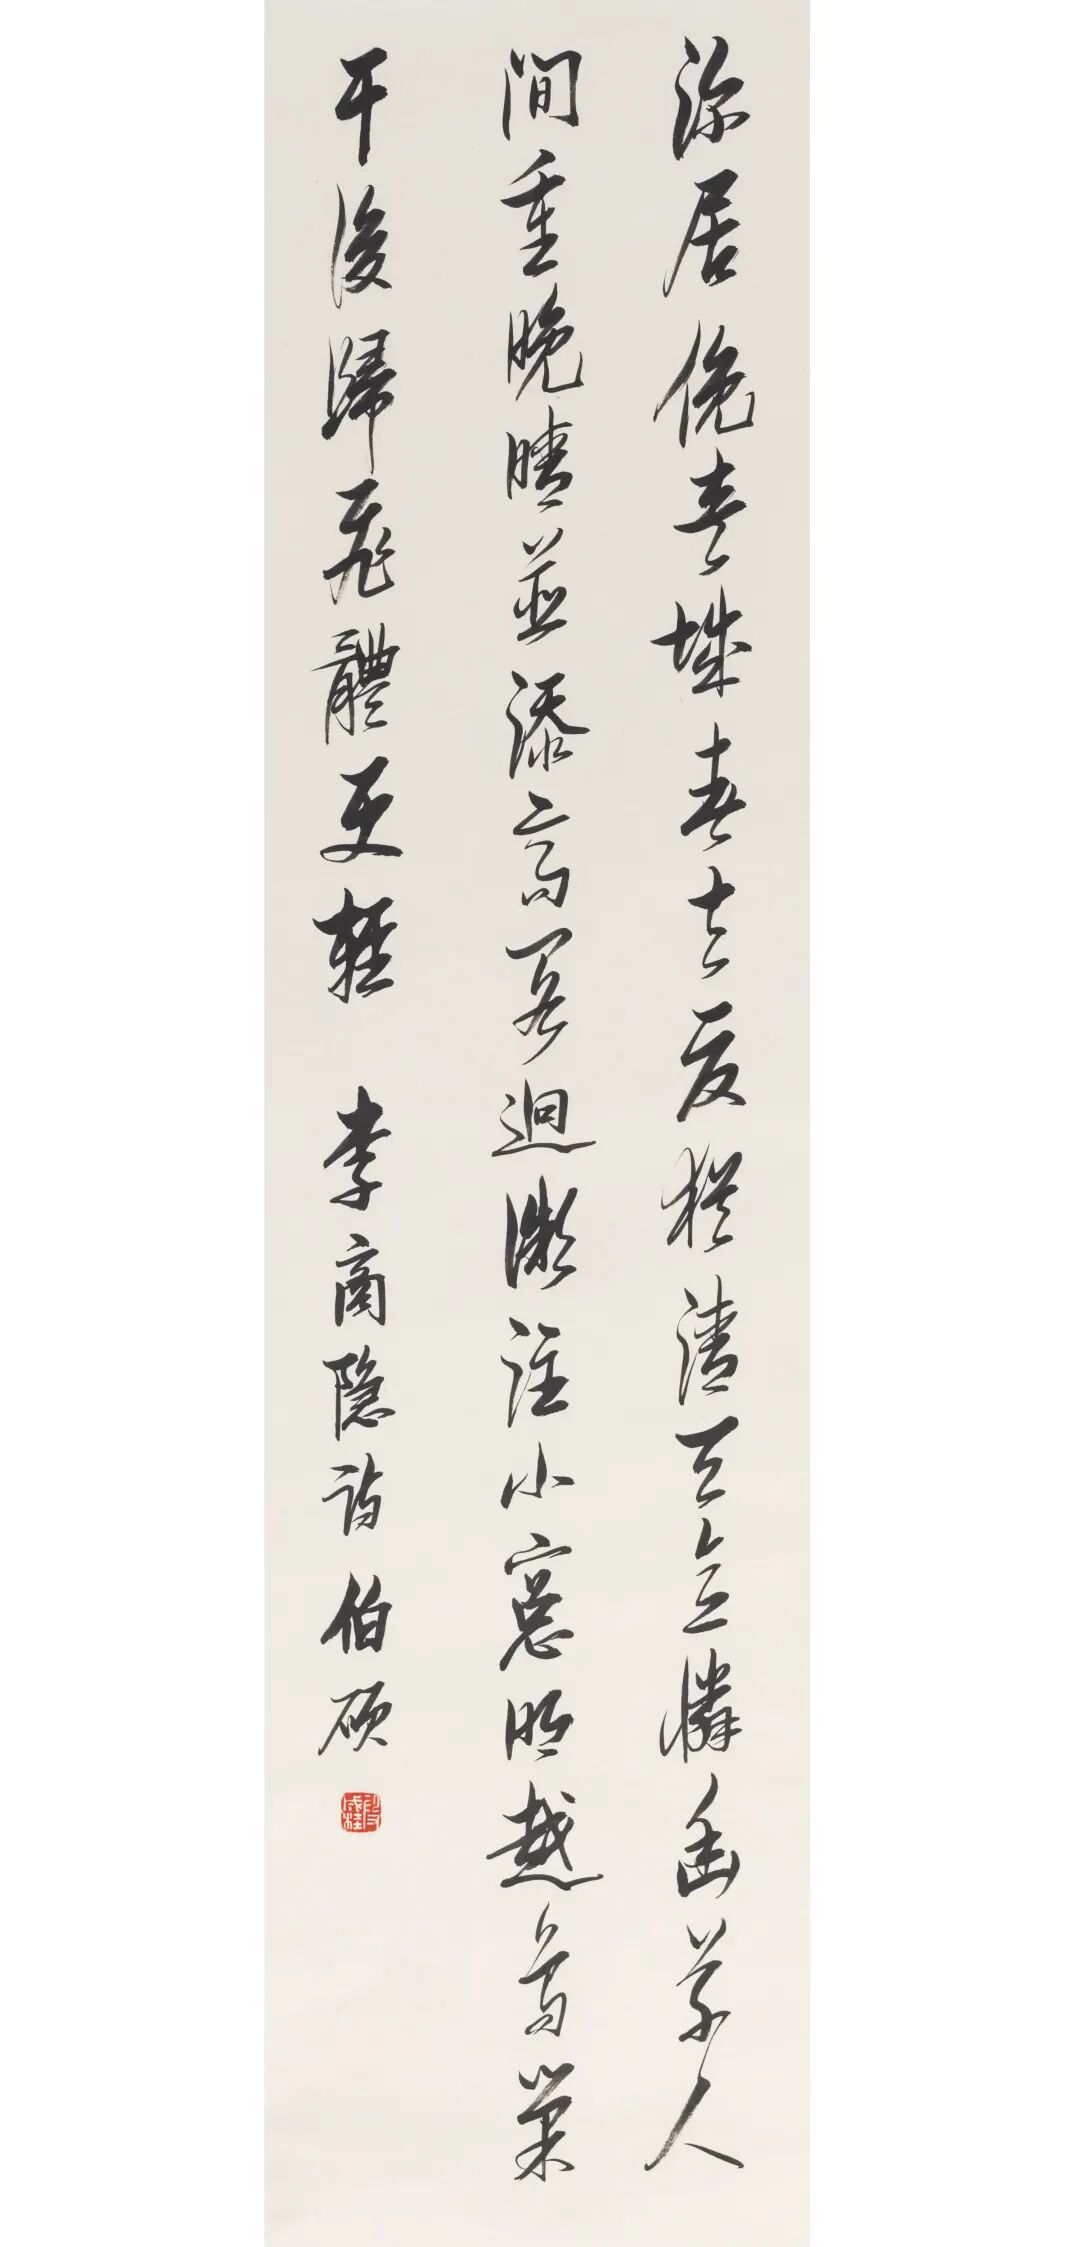 深居俛夾城春去夏猶清天意憐幽草人
間重晚晴並添高閣迥微注小窻明越鳥巢
干後歸飛體更輕 李商隐詩 伯碩
段成桂